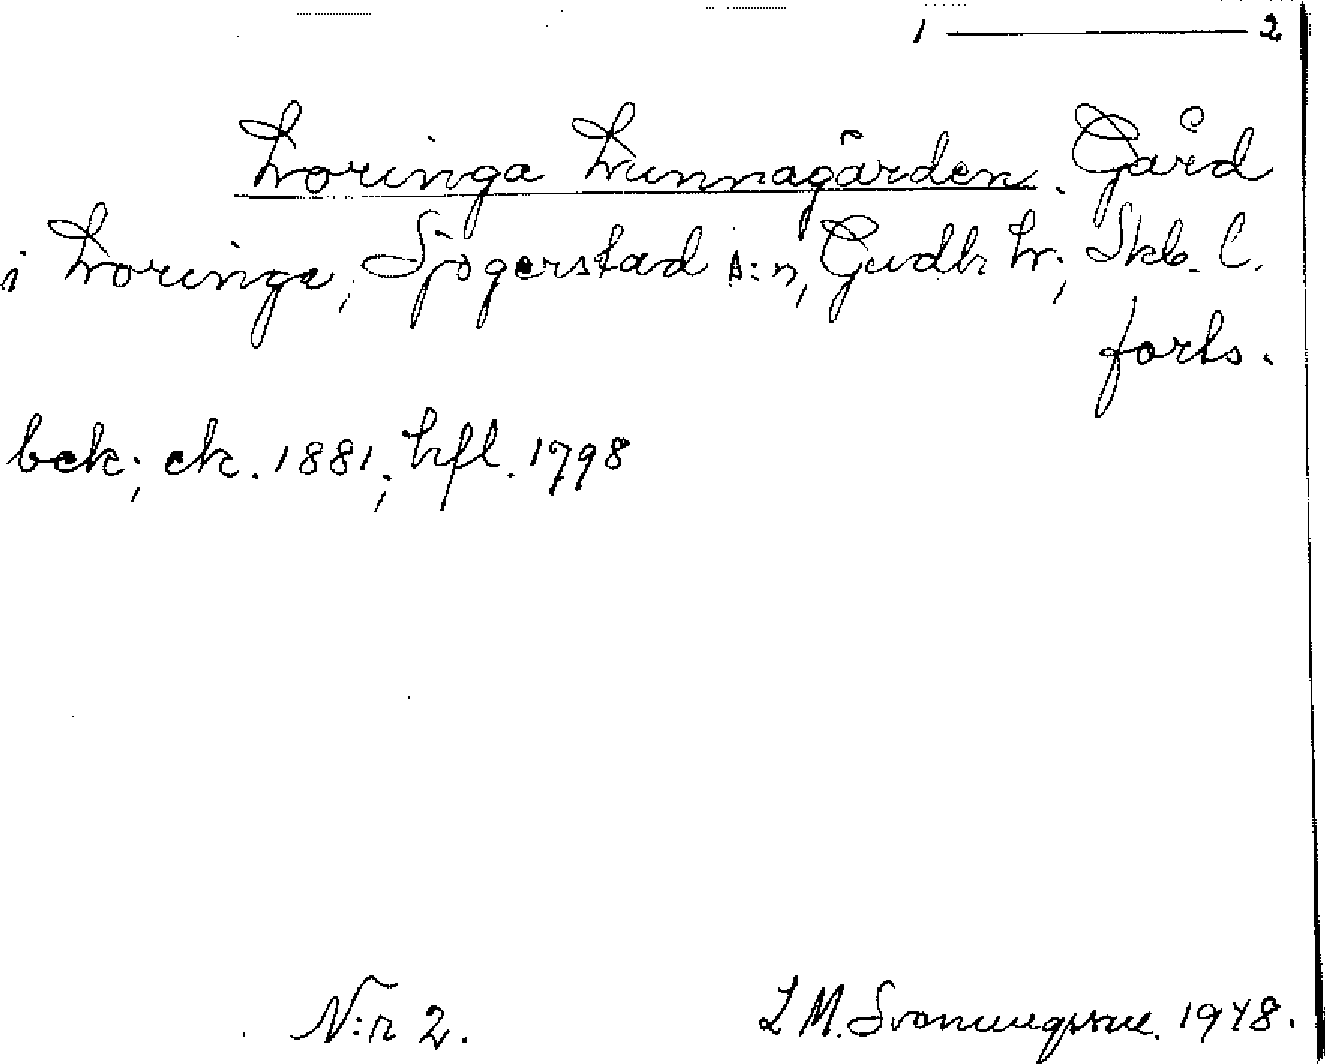 1 — 2
Loringa Lunnagården. Gård
i Loringa, Sjogerstad s:n, Gudh. hr; Skb. l.
forts.
bek; ek. 1881; hfl. 1798
N:r 2. L M. Svanungsson. 1948.